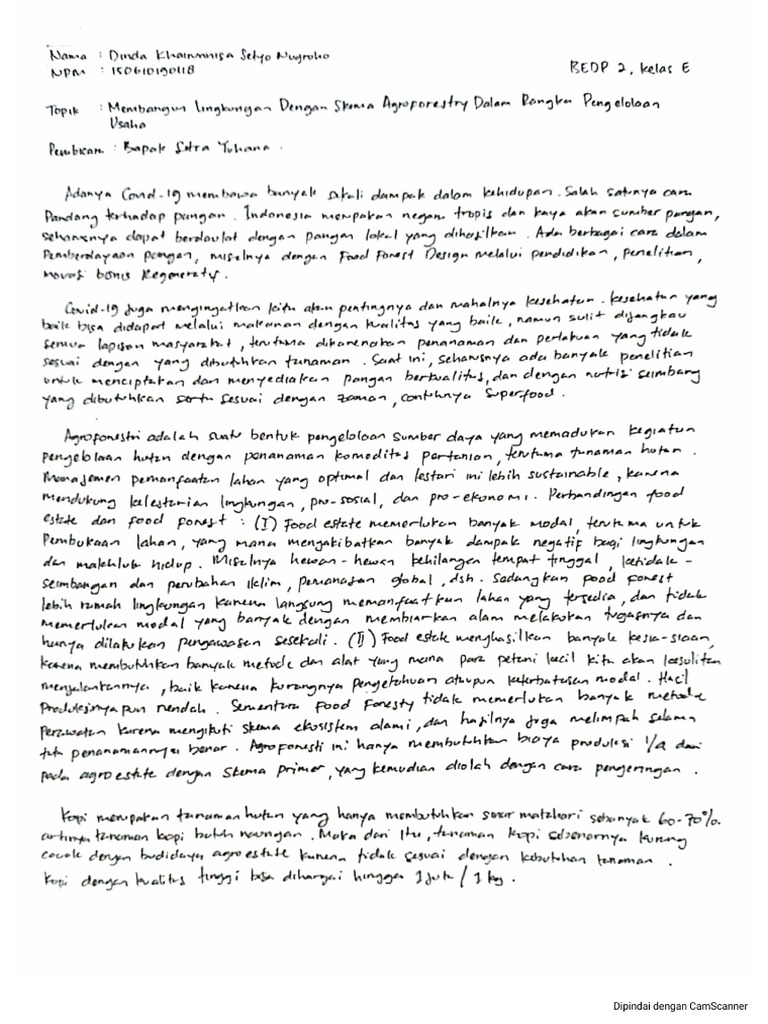 Nama : Dinda Khairunnisa Setyo Nugroho
NPM : 150610190118
BEDP 2, Kelas E
Topik : Membangun Lingkungan Dengan Skema Agroforestry Dalam Rangka Pengelolaan
Usaha
Pembicara : Bapak Sutra Yuhana .
Adanya Covid-19 membawa banyak sekali dampak dalam kehidupan. Salah satunya cara
Pandang terhadap pangan. Indonesia merupakan negara tropis dan kaya akan sumber pangan,
seharusnya dapat berdaulat dengan pangan lokal yang dihasilkan. Ada berbagai cara dalam
Pemberdayaan pangan, misalnya dengan Food Forest Design melalui pendidikan, penelitian,
bisnis Regeneratif.
Covid-19 juga mengingatkan kita akan pentingnya dan mahalnya kesehatan. kesehatan yang
baik bisa didapat melalui makanan dengan kualitas yang baik, namun sulit dijangkau
semua lapisan masyarakat, terutama dikarenakan penanaman dan perlakuan yang tidak
sesuai dengan yang dibutuhkan tanaman. Saat ini, seharusnya ada banyak penelitian
untuk menciptakan dan menyediakan pangan berkualitas, dan dengan nutrisi seimbang
yang dibutuhkan serta sesuai dengan zaman, contohnya Superfood.
Agroforestri adalah suatu bentuk pengelolaan sumber daya yang memadukan kegiatan
pengelolaan hutan dengan penanaman komoditas pertanian, terutama tanaman hutan.
Manajemen pemanfaatan lahan yang optimal dan lestari ini lebih sustainable, karena
mendukung kelestarian lingkungan, pro-sosial, dan pro-ekonomi. Perbandingan food
estate dan food forest : (I) Food estate memerlukan banyak modal, terutama untuk
Pembukaan lahan, yang mana mengakibatkan banyak dampak negatif bagi lingkungan
dan makhluk hidup. Misalnya hewan-hewan kehilangan tempat tinggal, ketidak-
seimbangan dan perubahan iklim, pemanasan global, dsb. Sedangkan food forest
lebih ramah lingkungan karena langsung memanfaatkan lahan yang tersedia, dan tidak
memerlukan modal yang banyak dengan membiarkan alam melakukan tugasnya dan
hanya dilakukan pengawasan sesekali. (II) Food estate menghasilkan banyak kesia-siaan,
karena membutuhkan banyak metode dan alat yang mana para petani kecil kita akan kesulitan
menjalankannya, baik karena kurangnya pengetahuan ataupun keterbatasan modal. Hasil
Produksinya pun rendah. Sementara Food Foresty tidak memerlukan banyak metode
Perawatan karena mengikuti skema ekosistem alami, dan hasilnya juga melimpah selama
penanamannya benar. Agroforesti ini hanya membutuhkan biaya produksi 1/2 dari
pada agroestate dengan skema primer, yang kemudian diolah dengan cara pengeringan.
Kopi merupakan tanaman hutan yang hanya membutuhkan sinar matahari sebanyak 60-70%.
artinya tanaman kopi butuh naungan. Maka dari itu, tanaman kopi sebenarnya kurang
cocok dengan budidaya agroestate karena tidak sesuai dengan kebutuhan tanaman.
Kopi dengan kualitas tinggi bisa dihargai hingga 1 juta / 1 kg.
Dipindai dengan CamScanner